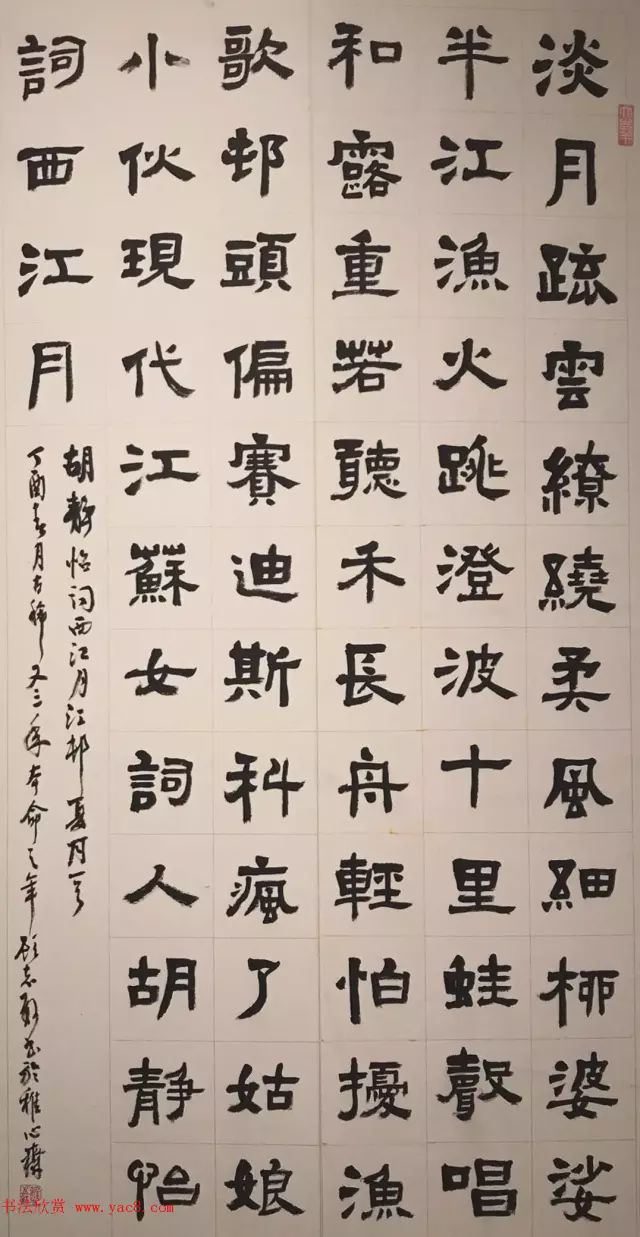 淡月疏雲繚繞柔風細栁婆娑
半江漁火跳澄波十里蛙聲唱
和露重若聽禾長舟輕怕擾漁
歌邨頭偏賽迪斯科瘋了姑娘
小伙現代江蘇女詞人胡靜怡
詞西江月
胡靜怡詞西江月江邨夏月
丁酉春月古稀又三年本命之年
书法欣赏 www.yac8.com